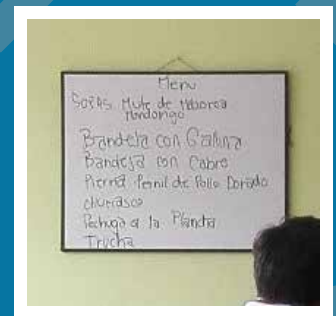 Menu
SOPAS: Mute de Mazorca
Mondongo
Bandeja con Gallina
Bandeja con Cabro
Pierna Pernil de Pollo Dorado
churrasco
Pechuga a la Plancha
Trucha